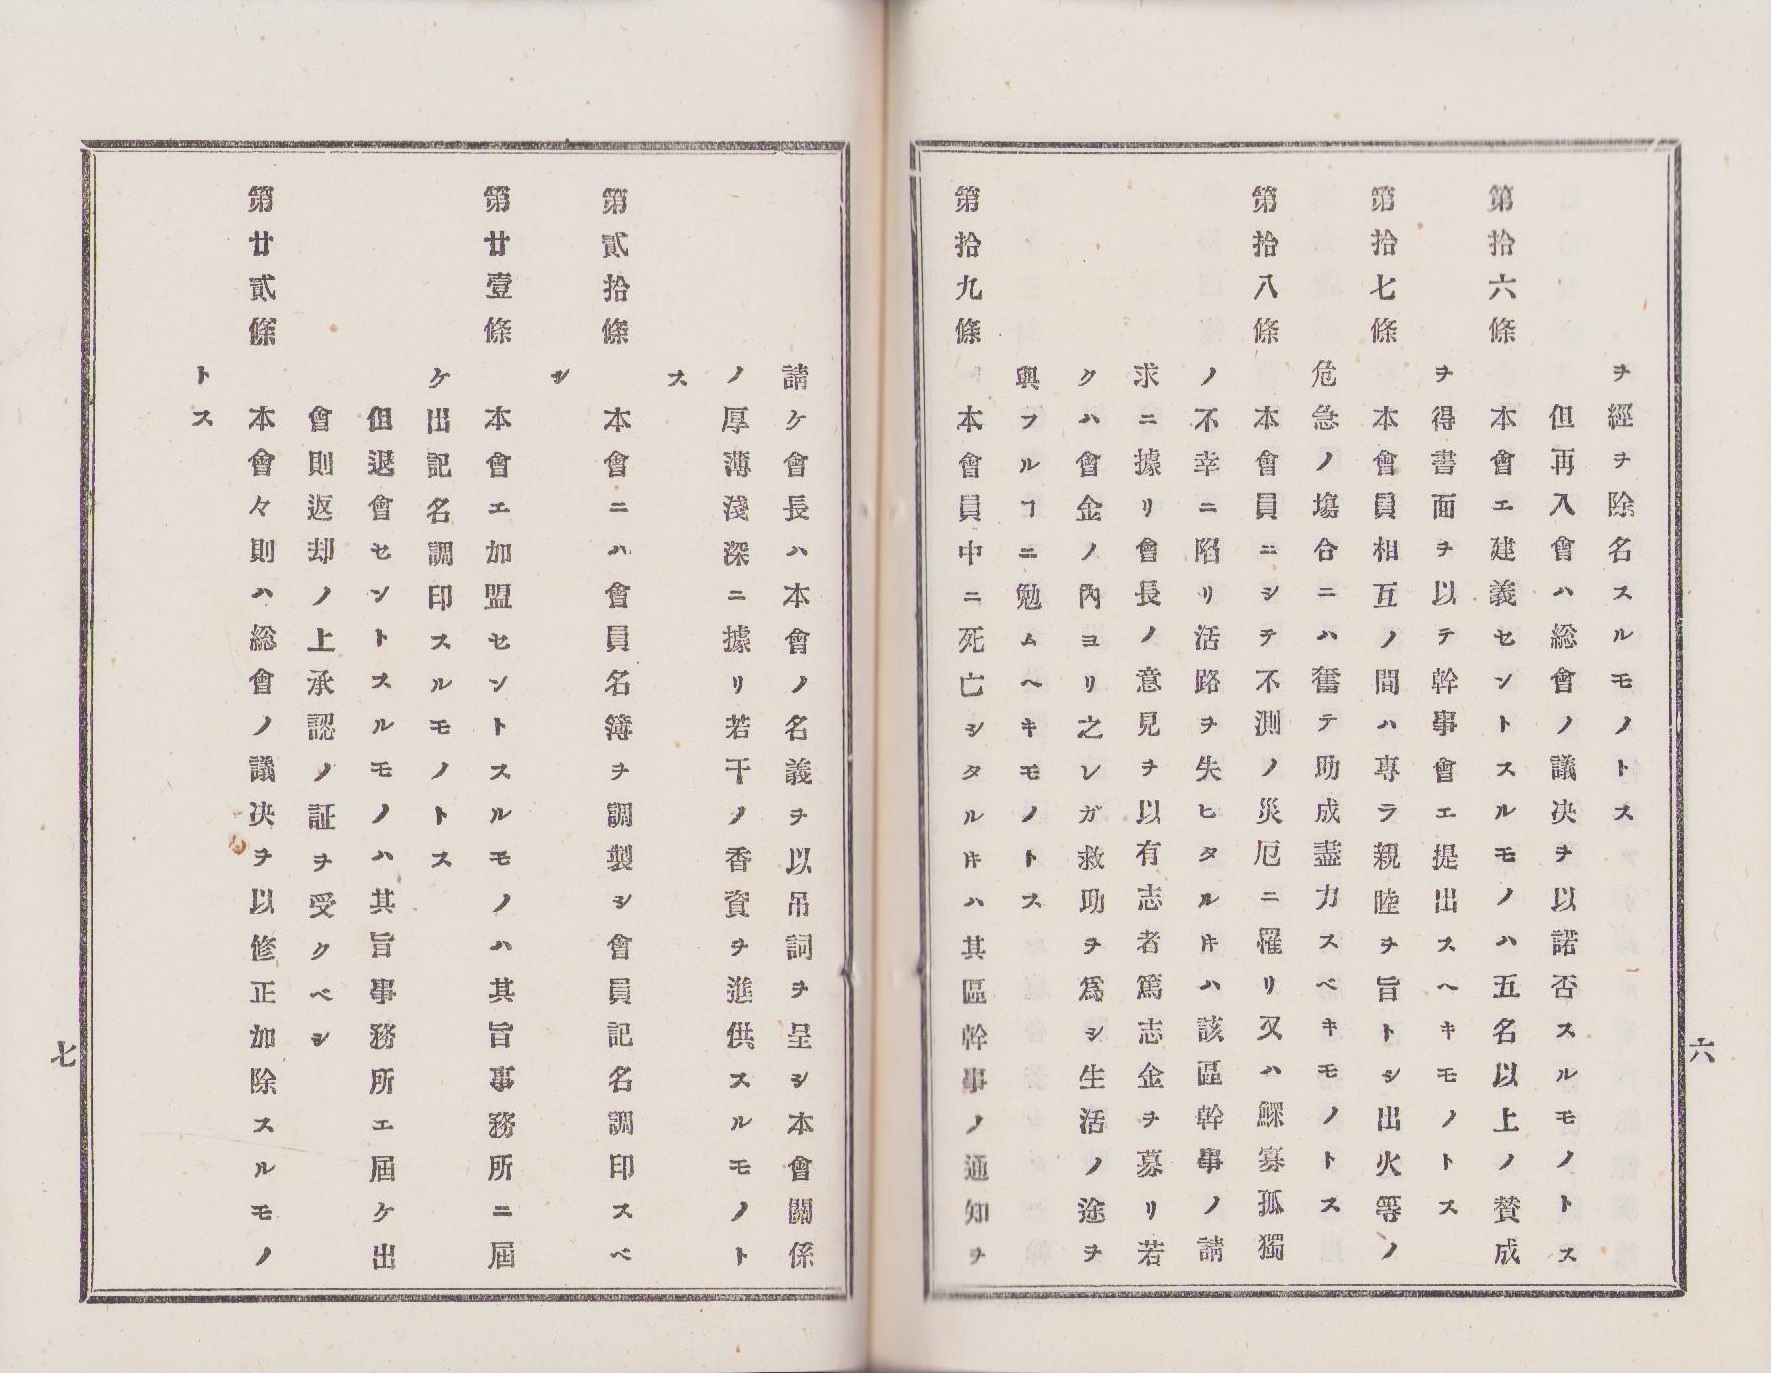 ヲ經ヲ除名スルモノトス
但再入會ハ総會ノ議决ヲ以諾否スルモノトス
第拾六條 本會エ建義セントスルモノハ五名以上ノ賛成
ヲ得書面ヲ以テ幹事會エ提出スヘキモノトス
第拾七條 本會員相互ノ間ハ專ラ親睦ヲ旨トシ出火等ノ
危急ノ塲合ニハ奮テ助成盡力スベキモノトス
第拾八條 本會員ニシテ不測ノ災厄ニ罹リ又ハ鰥寡孤獨
ノ不幸ニ陷リ活路ヲ失ヒタルキハ該區幹事ノ請
求ニ據リ會長ノ意見ヲ以有志者篤志金ヲ募リ若
クハ會金ノ內ヨリ之レガ救助ヲ爲シ生活ノ途ヲ
與フルヿニ勉ムヘキモノトス
第拾九條 本會員中ニ死亡シタル𪜈ハ其區幹事ノ通知ヲ
六
請ケ會長ハ本會ノ名義ヲ以吊詞ヲ呈シ本會關係
ノ厚薄淺深ニ據リ若干ノ香資ヲ進供スルモノト
ス
第貳拾條 本會ニハ會員名簿ヲ調製シ會員記名調印スベ
シ
第廿壹條 本會エ加盟セントスルモノハ其旨事務所ニ屆
ケ出記名調印スルモノトス
但退會セントスルモノハ其旨事務所エ屆ケ出
會則返却ノ上承認ノ証ヲ受クベシ
第廿貳條 本會々則ハ総會ノ議决ヲ以修正加除スルモノ
トス
七